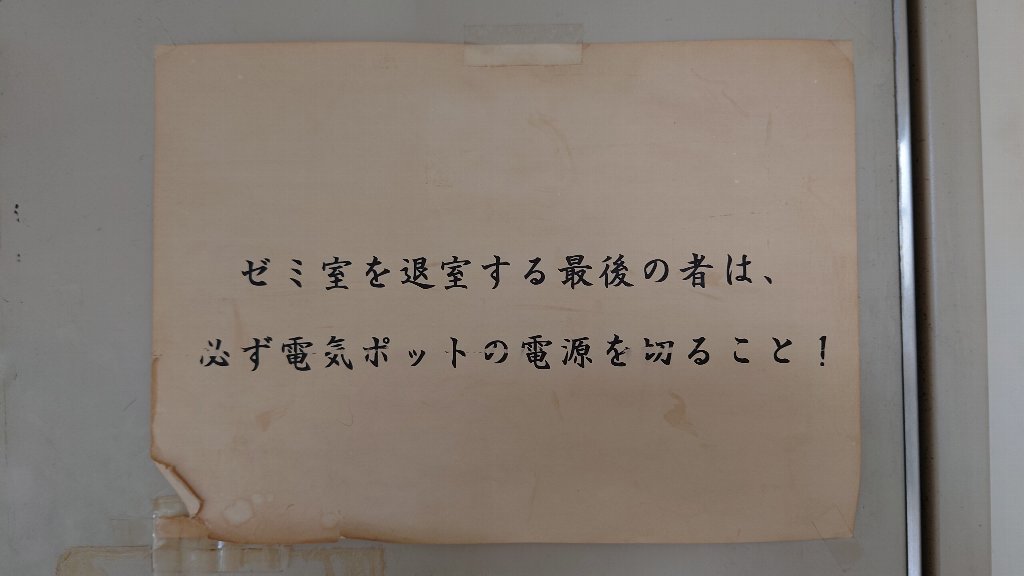 ゼミ室を退室する最後の者は、
必ず電気ポットの電源を切ること！